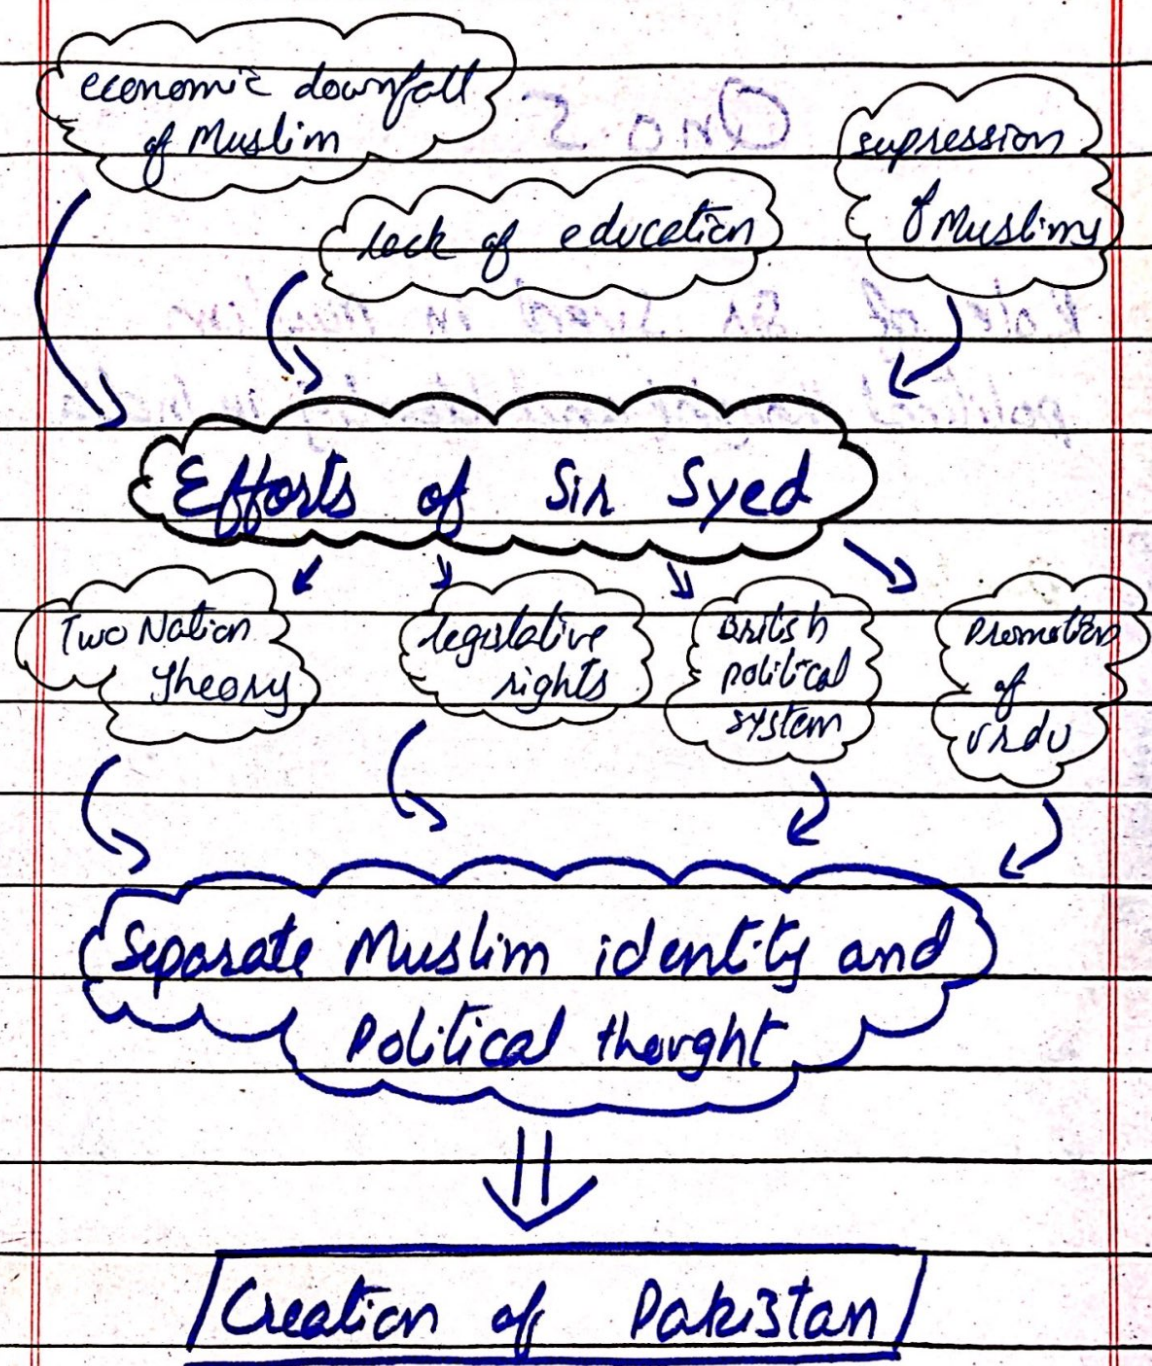 economic downfall
of Muslim
supression
of Muslims
lack of education
Efforts of Sir Syed
Two Nation
Theory
legislative
rights
British
political
system
Promotion
of
Urdu
Separate Muslim identity and
Political thought
Creation of Pakistan